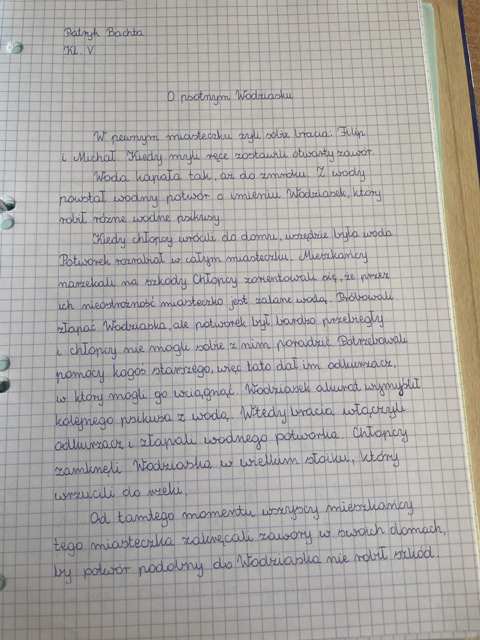 Patryk Bachta
Kl. V
O psotnym Wodziasku
W pewnym miasteczku żyli sobie bracia: Filip
i Michał. Kiedy myli ręce zostawili otwarty zawór.
Woda kapała tak, aż do zmroku. Z wody
powstał wodny potwór o imieniu Wodziasek, który
robił różne wodne psikusy.
Kiedy chłopcy wrócili do domu, wszędzie była woda.
Potworek rozrabiał w całym miasteczku. Mieszkańcy
narzekali na szkody. Chłopcy zorientowali się, że przez
ich nieostrożność miasteczko jest zalane wodą. Próbowali
złapać Wodziaska, ale potworek był bardzo przebiegły
i chłopcy nie mogli sobie z nim poradzić. Potrzebowali
pomocy kogoś starszego, więc tato dał im odkurzacz,
w który mogli go wciągnąć. Wodziasek akurat wymyślił
kolejnego psikusa z wodą. Wtedy bracia włączyli
odkurzacz i złapali wodnego potworka. Chłopcy
zamknęli Wodziaska w wielkim słoiku, który
wrzucili do rzeki.
Od tamtego momentu wszyscy mieszkańcy
tego miasteczka zakręcali zawory w swoich domach,
by potwór podobny do Wodziaska nie robił szkód.